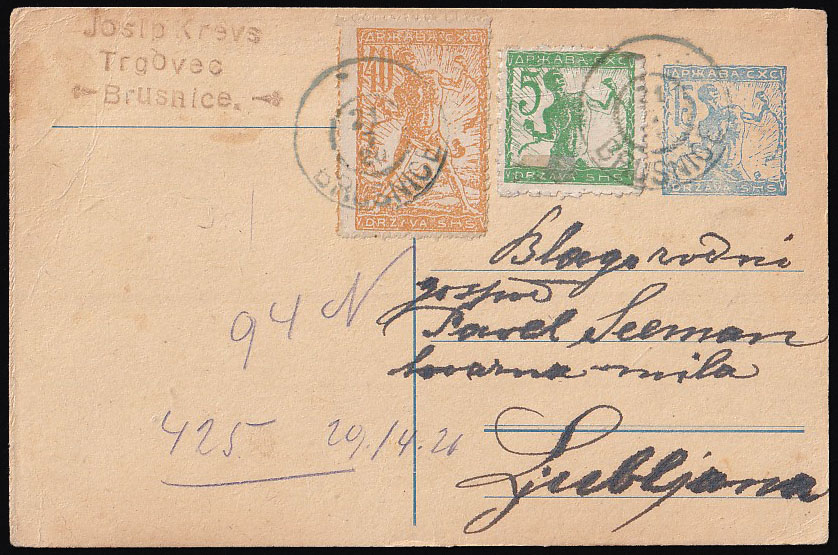 Josip Krevs
Trgovec
Brusnice.
ДРЖАВА СХС
40
DRŽAVA SHS
ДРЖАВА СХС
5
DRŽAVA SHS
ДРЖАВА СХС
15
DRŽAVA SHS
BRUSNICE
BRUSNICE
Blagorodni
gospod
Pavel Seeman
tovarna mila
Ljubljana
94 N
425 29./4.21